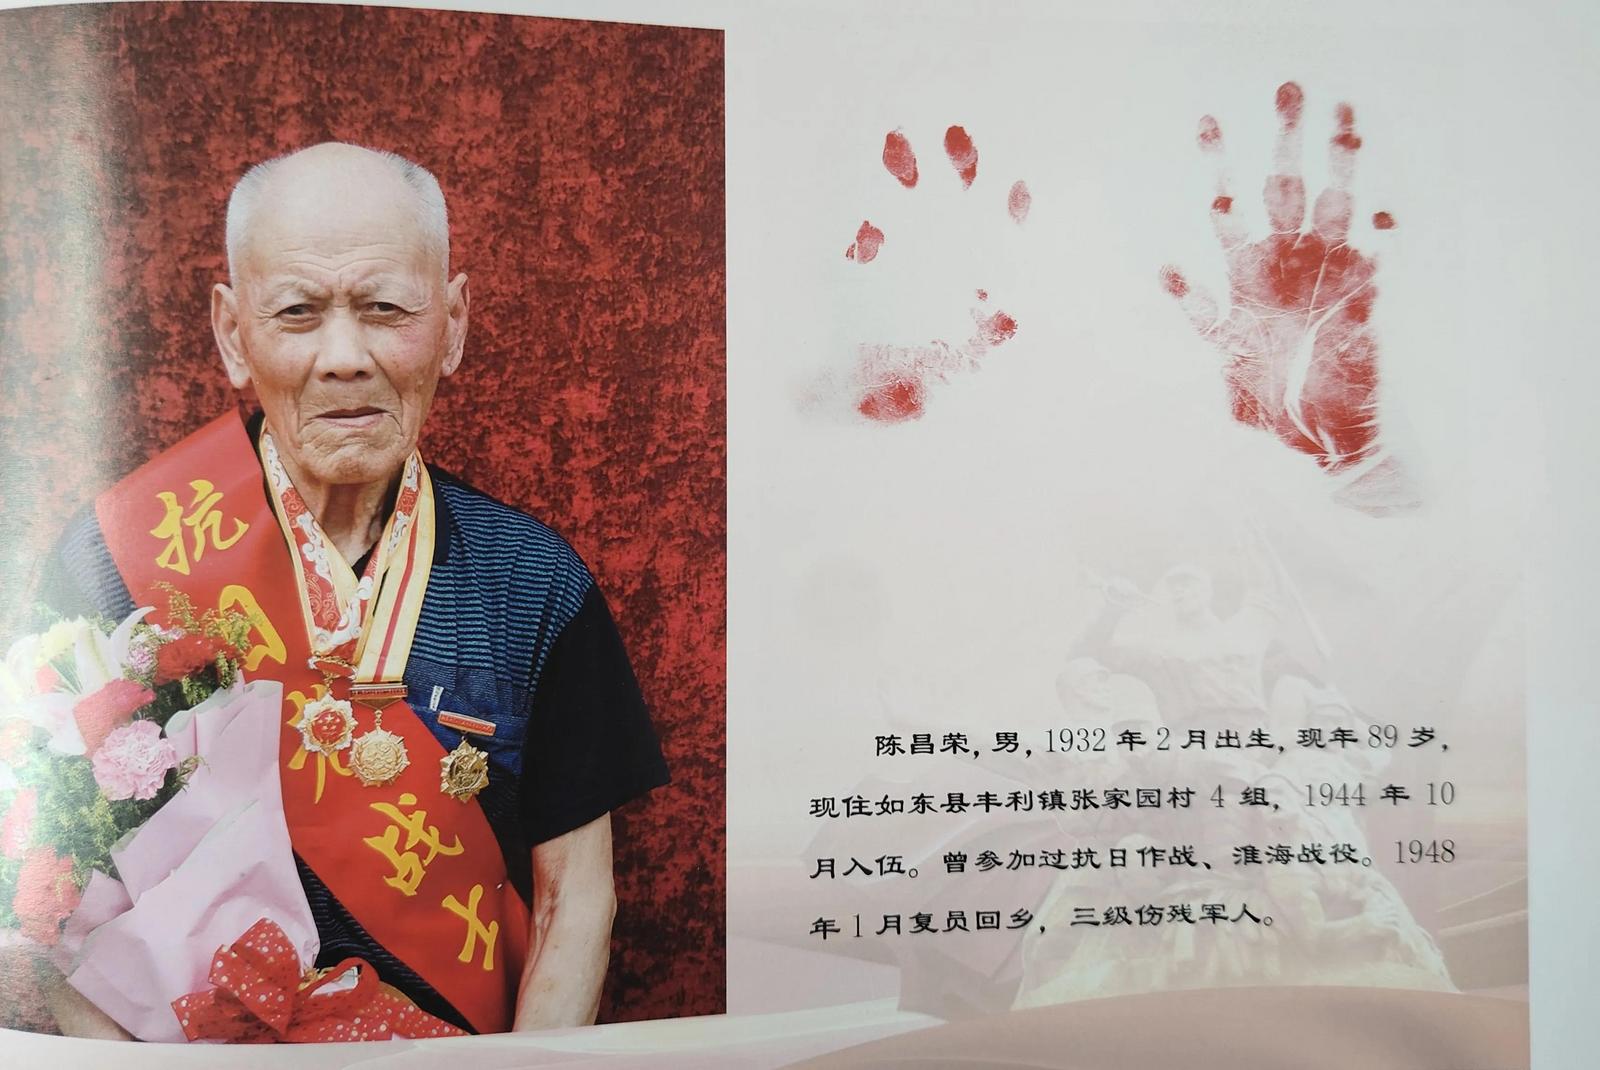 抗
日
老
战
士
陈昌荣，男，1932 年 2 月出生，现年 89 岁，
现住如东县丰利镇张家园村 4 组， 1944 年 10
月入伍。曾参加过抗日作战、淮海战役。1948
年 1 月复员回乡，三级伤残军人。